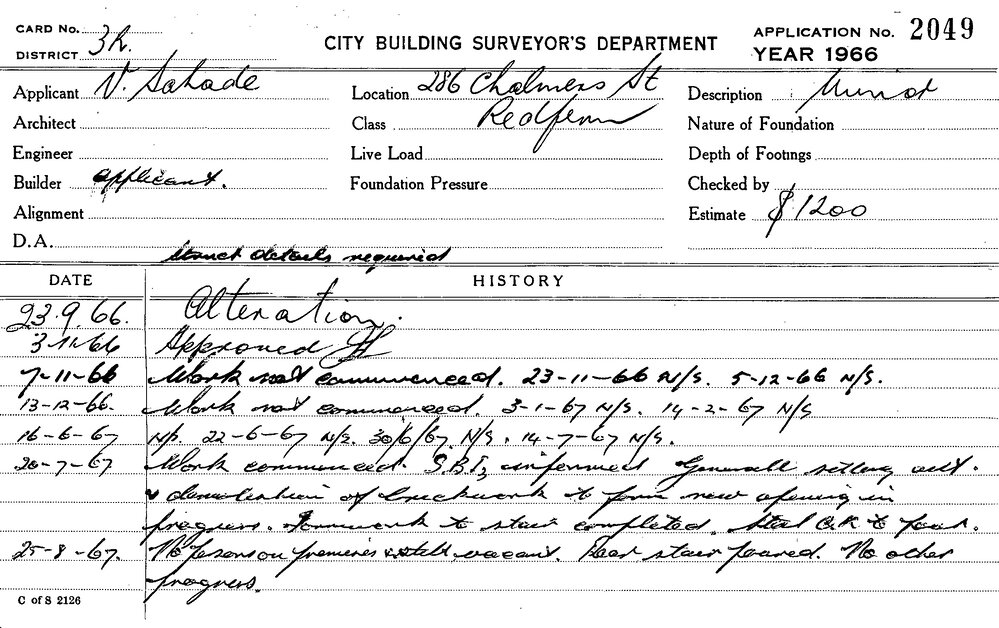 CARD No. 3R.
DISTRICT
CITY BUILDING SURVEYOR'S DEPARTMENT
APPLICATION No. 2049
YEAR 1966
Applicant V. Sahade
Location 286 Chalmers St
Redfern
Description Minor
Architect
Class
Nature of Foundation
Engineer
Live Load
Depth of Footings
Builder applicant.
Foundation Pressure
Checked by
Alignment
Estimate $1200
D.A.
Struct details required
DATE HISTORY
23.9.66. Alteration.
3-11-66 Approved
7-11-66 Work not commenced. 23-11-66 N/S. 5-12-66 N/S.
13-12-66. Work not commenced. 3-1-67 N/S. 14-2-67 N/S
16-6-67 N/P. 22-6-67 N/S. 30/6/67 N/S. 14-7-67 N/S.
20-7-67 Work commenced. informed Generall setting out.
& demolition of brickwork to form new opening in
progress. Formwork to stair completed. Steel O.K. to pour.
25-8-67. No person on premises still vacant. Rear stair poured. No other
progress.
C of S 2126